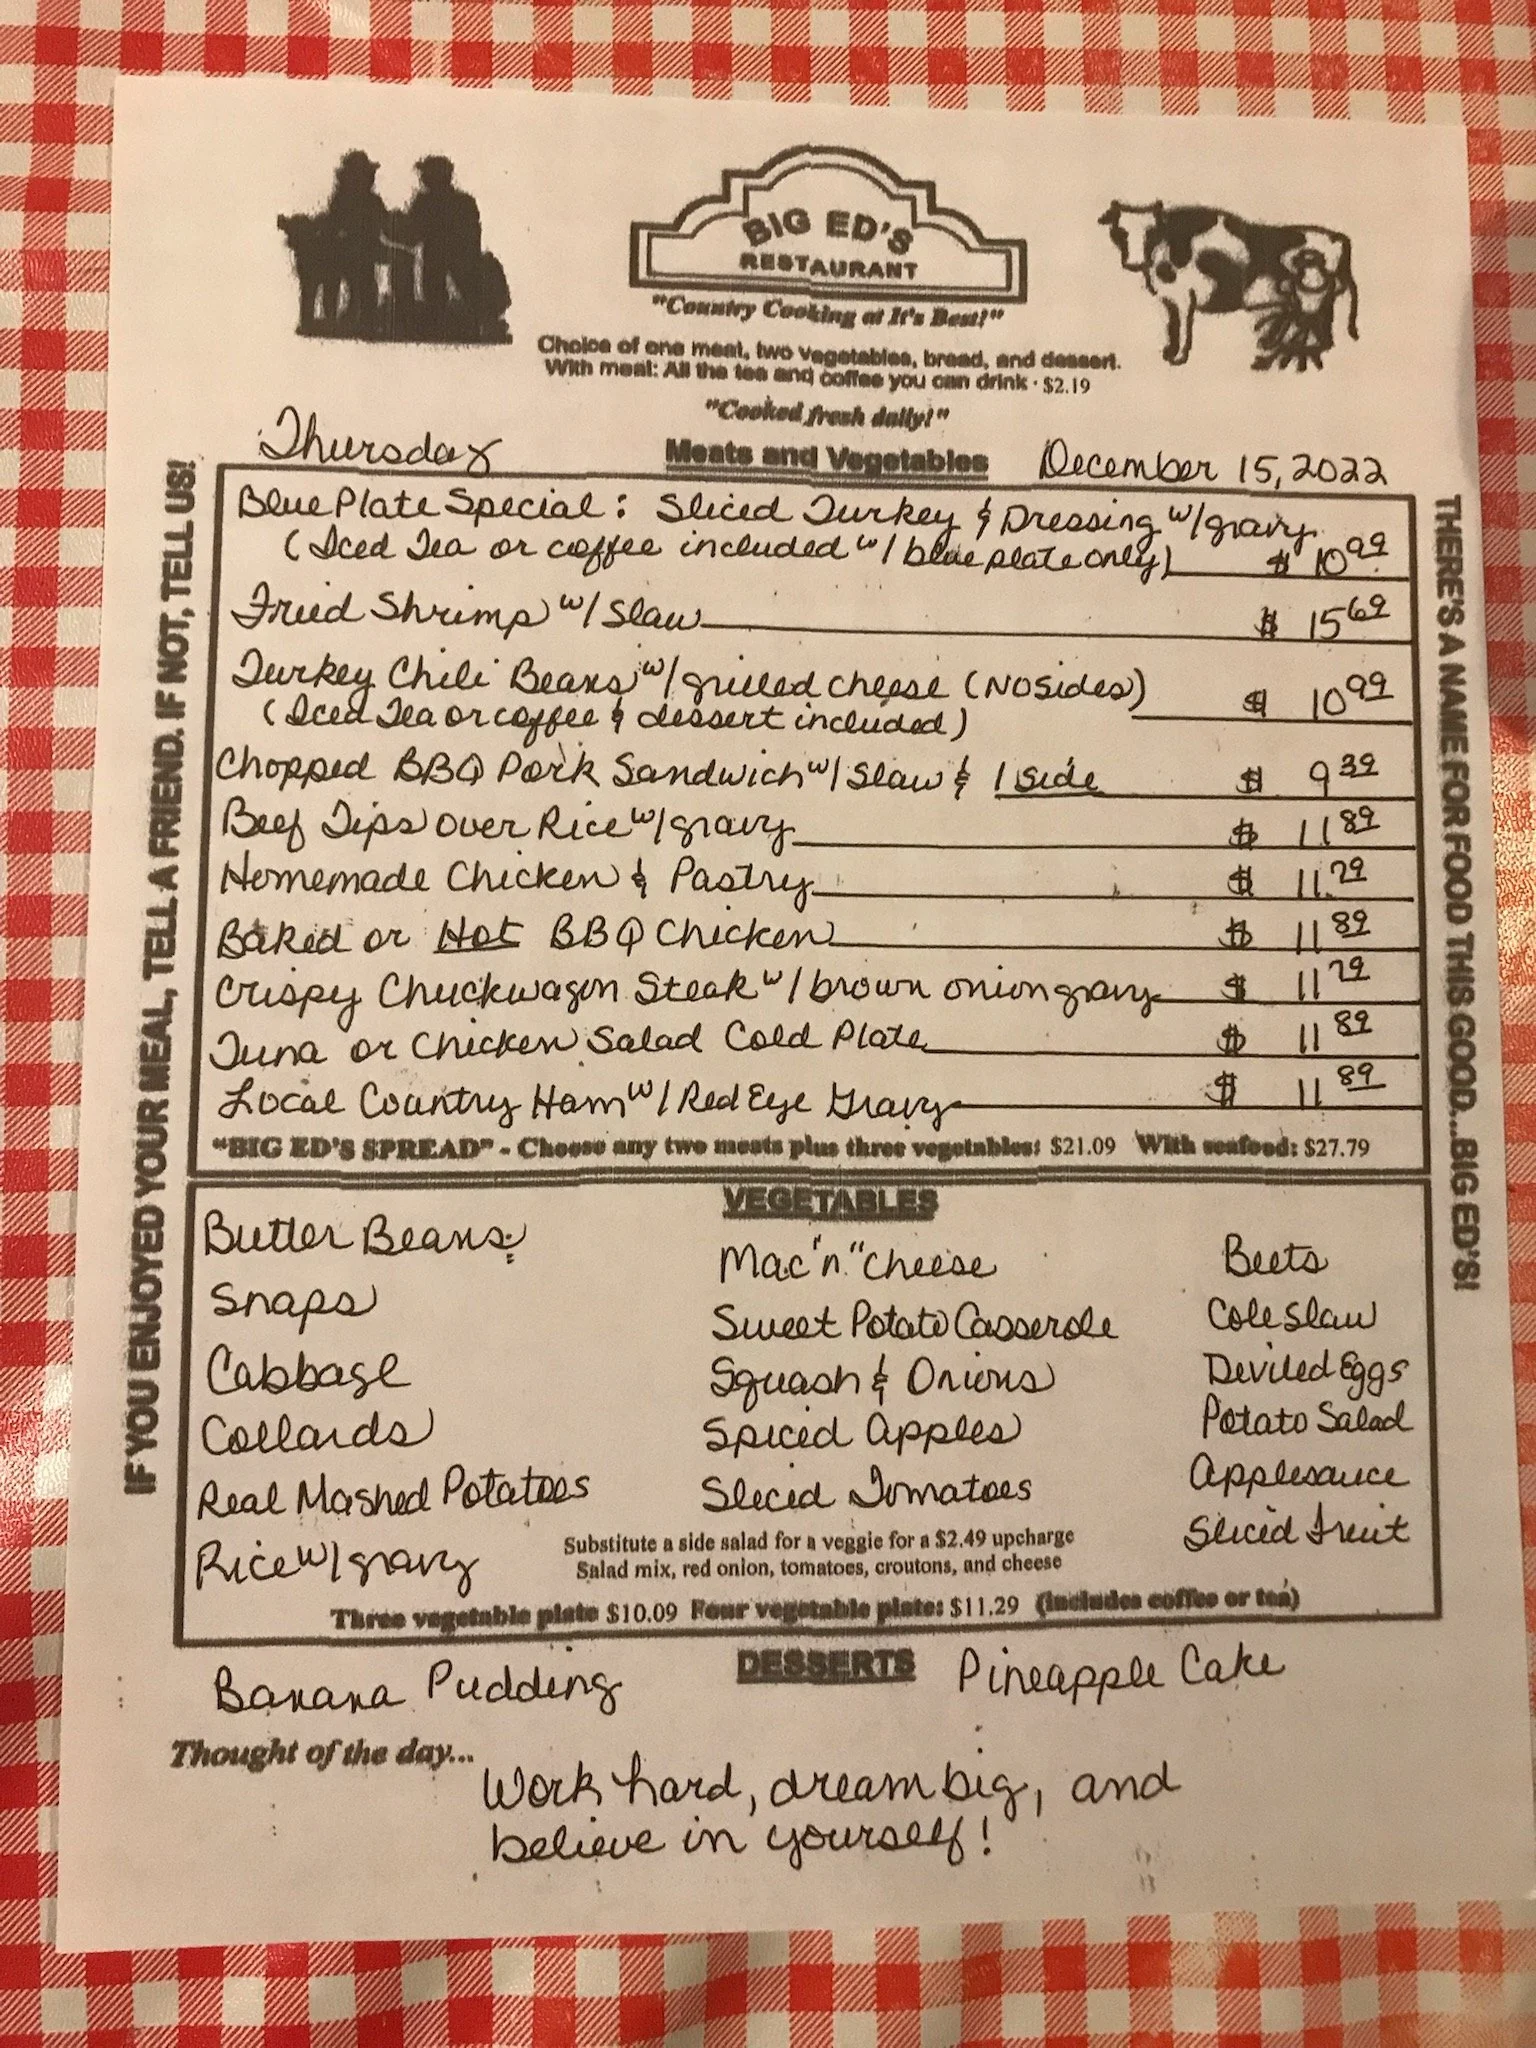 BIG ED'S
RESTAURANT
"Country Cooking at It's Best!"
Choice of one meat, two vegetables, bread, and dessert.
With meal: All the tea and coffee you can drink · $2.19
"Cooked fresh daily!"
Thursday
Meats and Vegetables
December 15, 2022
IF YOU ENJOYED YOUR MEAL, TELL A FRIEND. IF NOT, TELL US!
THERE'S A NAME FOR FOOD THIS GOOD...BIG ED'S!
Blue Plate Special: Sliced Turkey & Dressing w/gravy
(Iced Tea or coffee included w/ blue plate only) $ 10 99
Fried Shrimp w/ Slaw $ 15 69
Turkey Chili Beans w/grilled cheese (No Sides) $ 10 99
(Iced Tea or coffee & dessert included)
Chopped BBQ Pork Sandwich w/ Slaw & 1 side $ 9 39
Beef Tips over Rice w/gravy $ 11 89
Homemade Chicken & Pastry $ 11.29
Baked or Hot BBQ Chicken $ 11 89
Crispy Chuckwagon Steak w/ brown onion gravy $ 11 79
Tuna or Chicken Salad Cold Plate $ 11 89
Local Country Ham w/ Red Eye Gravy $ 11 89
"BIG ED'S SPREAD" - Choose any two meats plus three vegetables: $21.09 With seafood: $27.79
VEGETABLES
Butter Beans
Snaps
Cabbage
Collards
Real Mashed Potatoes
Rice w/ gravy
Mac "n" Cheese
Sweet Potato Casserole
Squash & Onions
Spiced Apples
Sliced Tomatoes
Beets
Cole Slaw
Deviled Eggs
Potato Salad
Applesauce
Sliced Fruit
Substitute a side salad for a veggie for a $2.49 upcharge
Salad mix, red onion, tomatoes, croutons, and cheese
Three vegetable plate $10.09 Four vegetable plate: $11.29 (includes coffee or tea)
DESSERTS
Banana Pudding
Pineapple Cake
Thought of the day...
Work hard, dream big, and
believe in yourself!